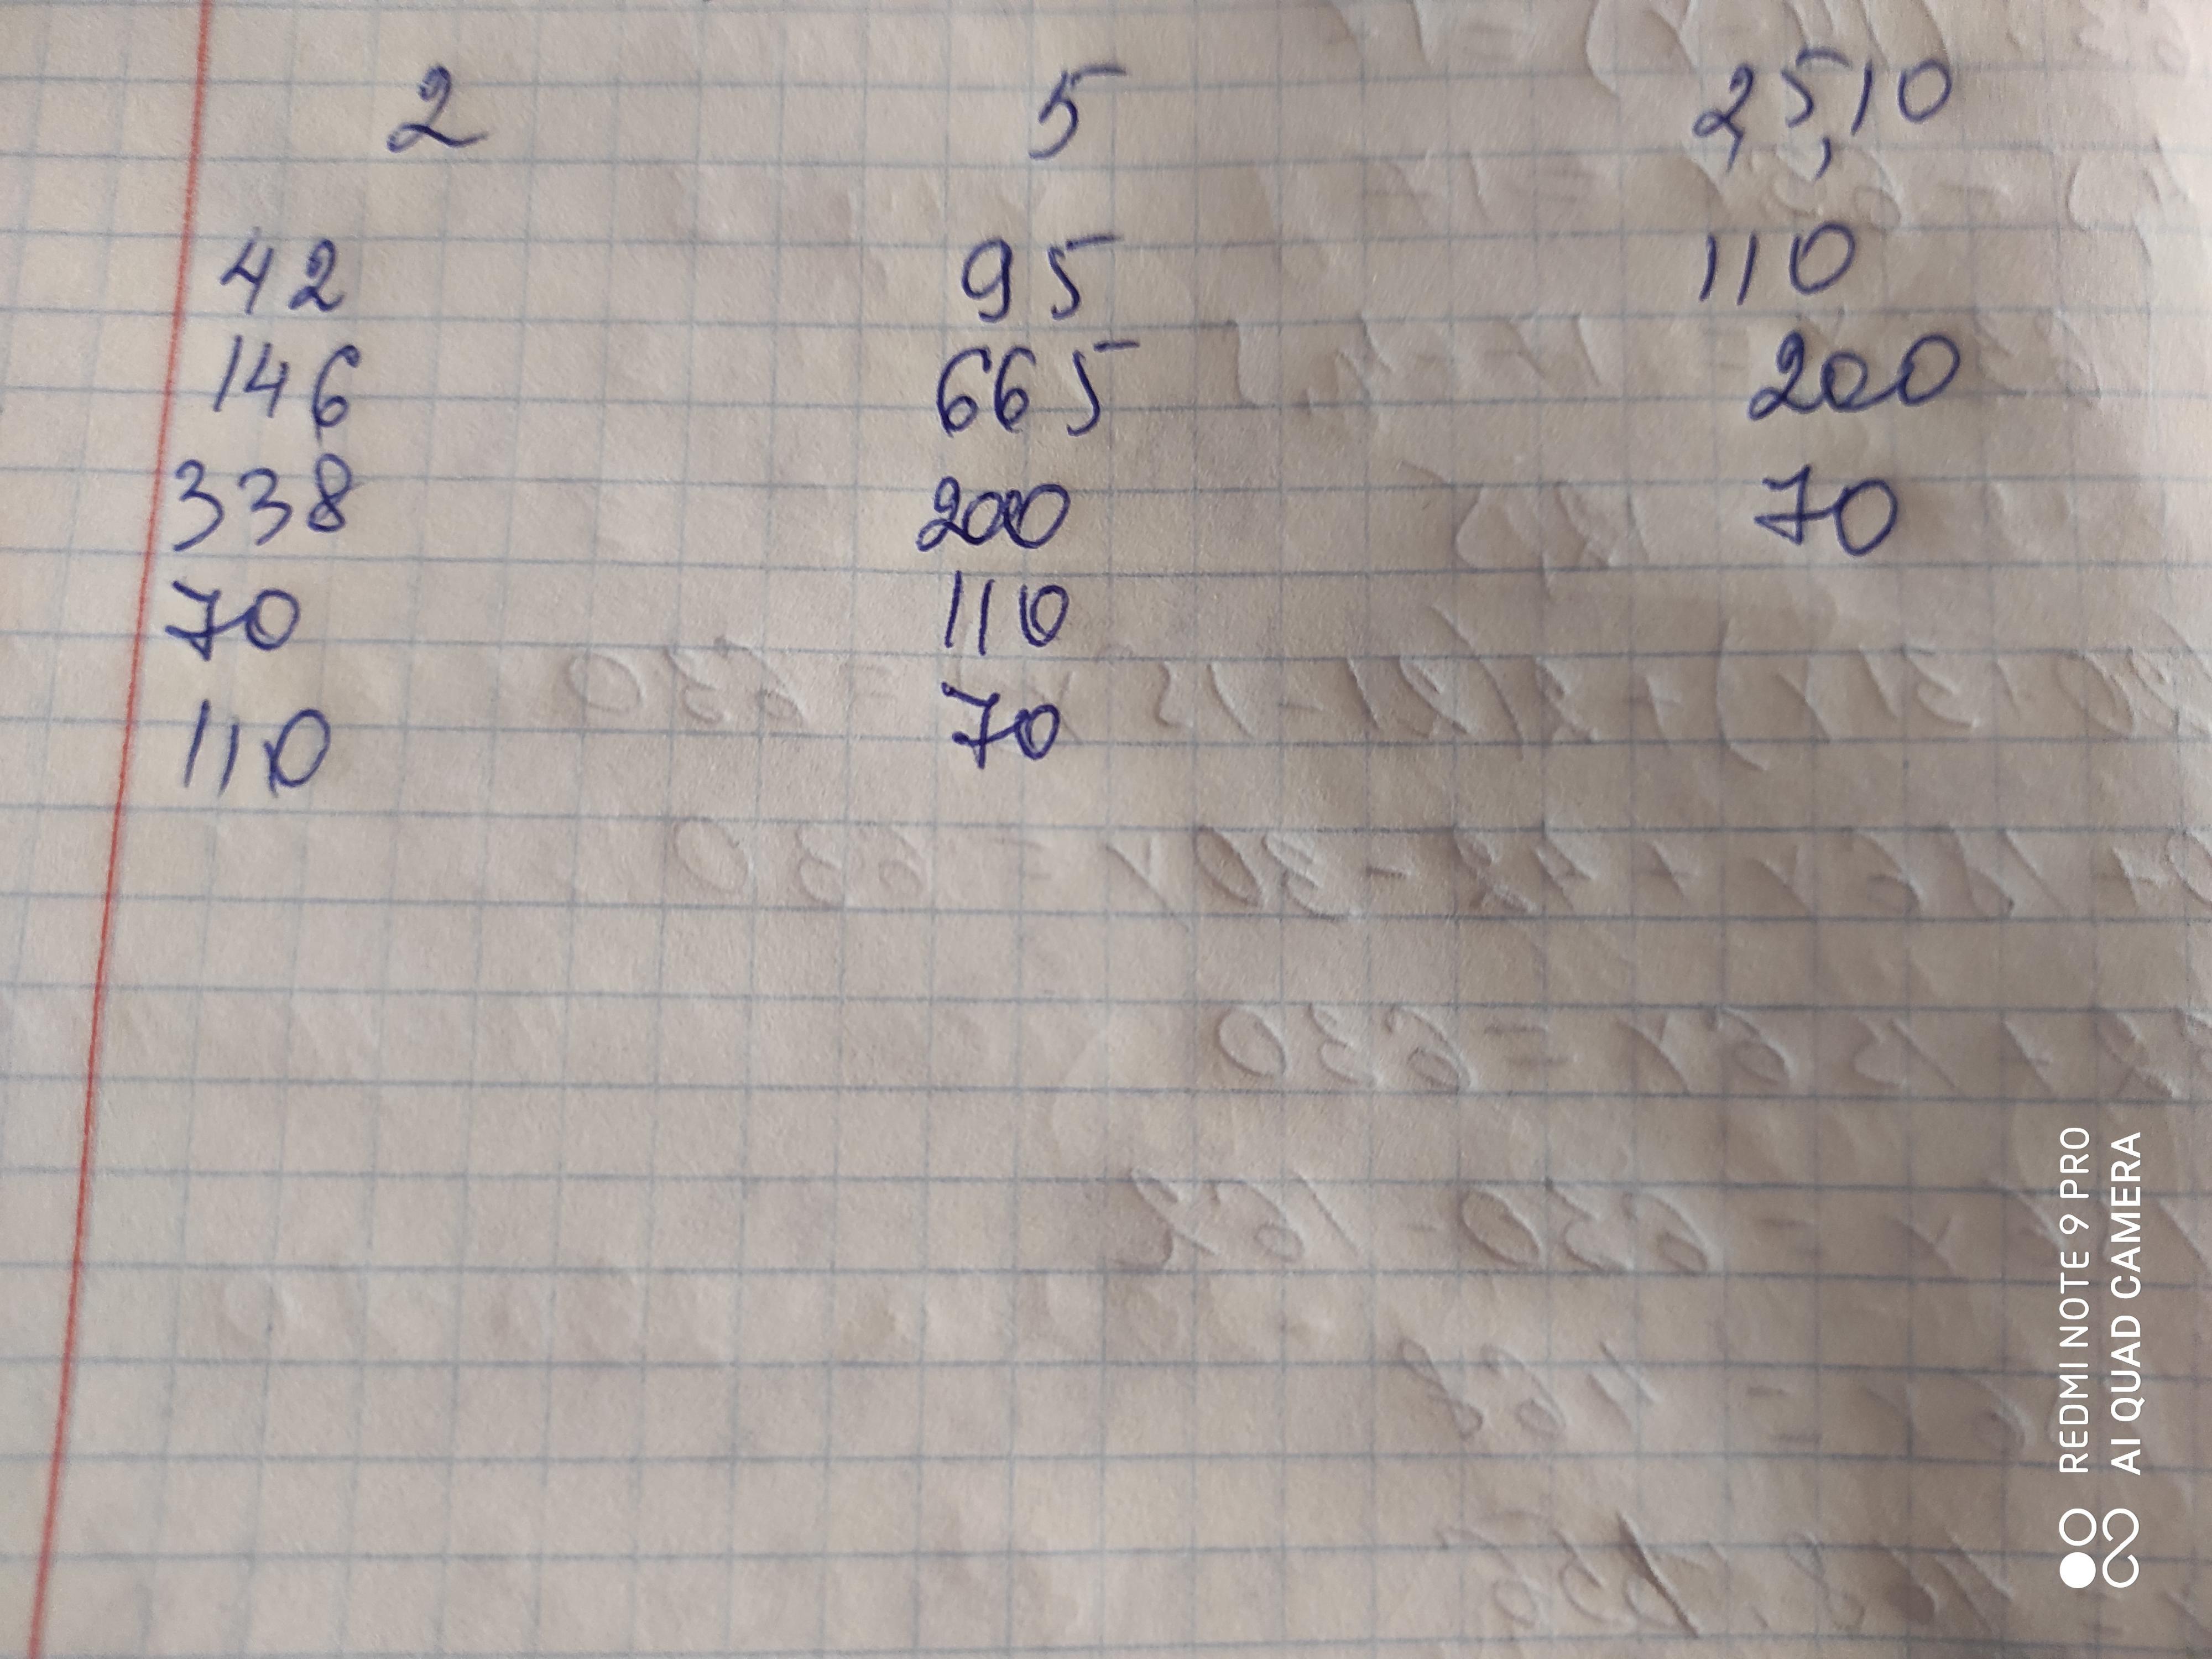 2 5 2,5,10
42 95 110
146 665 200
338 200 70
70 110
110 70
REDMI NOTE 9 PRO
AI QUAD CAMERA